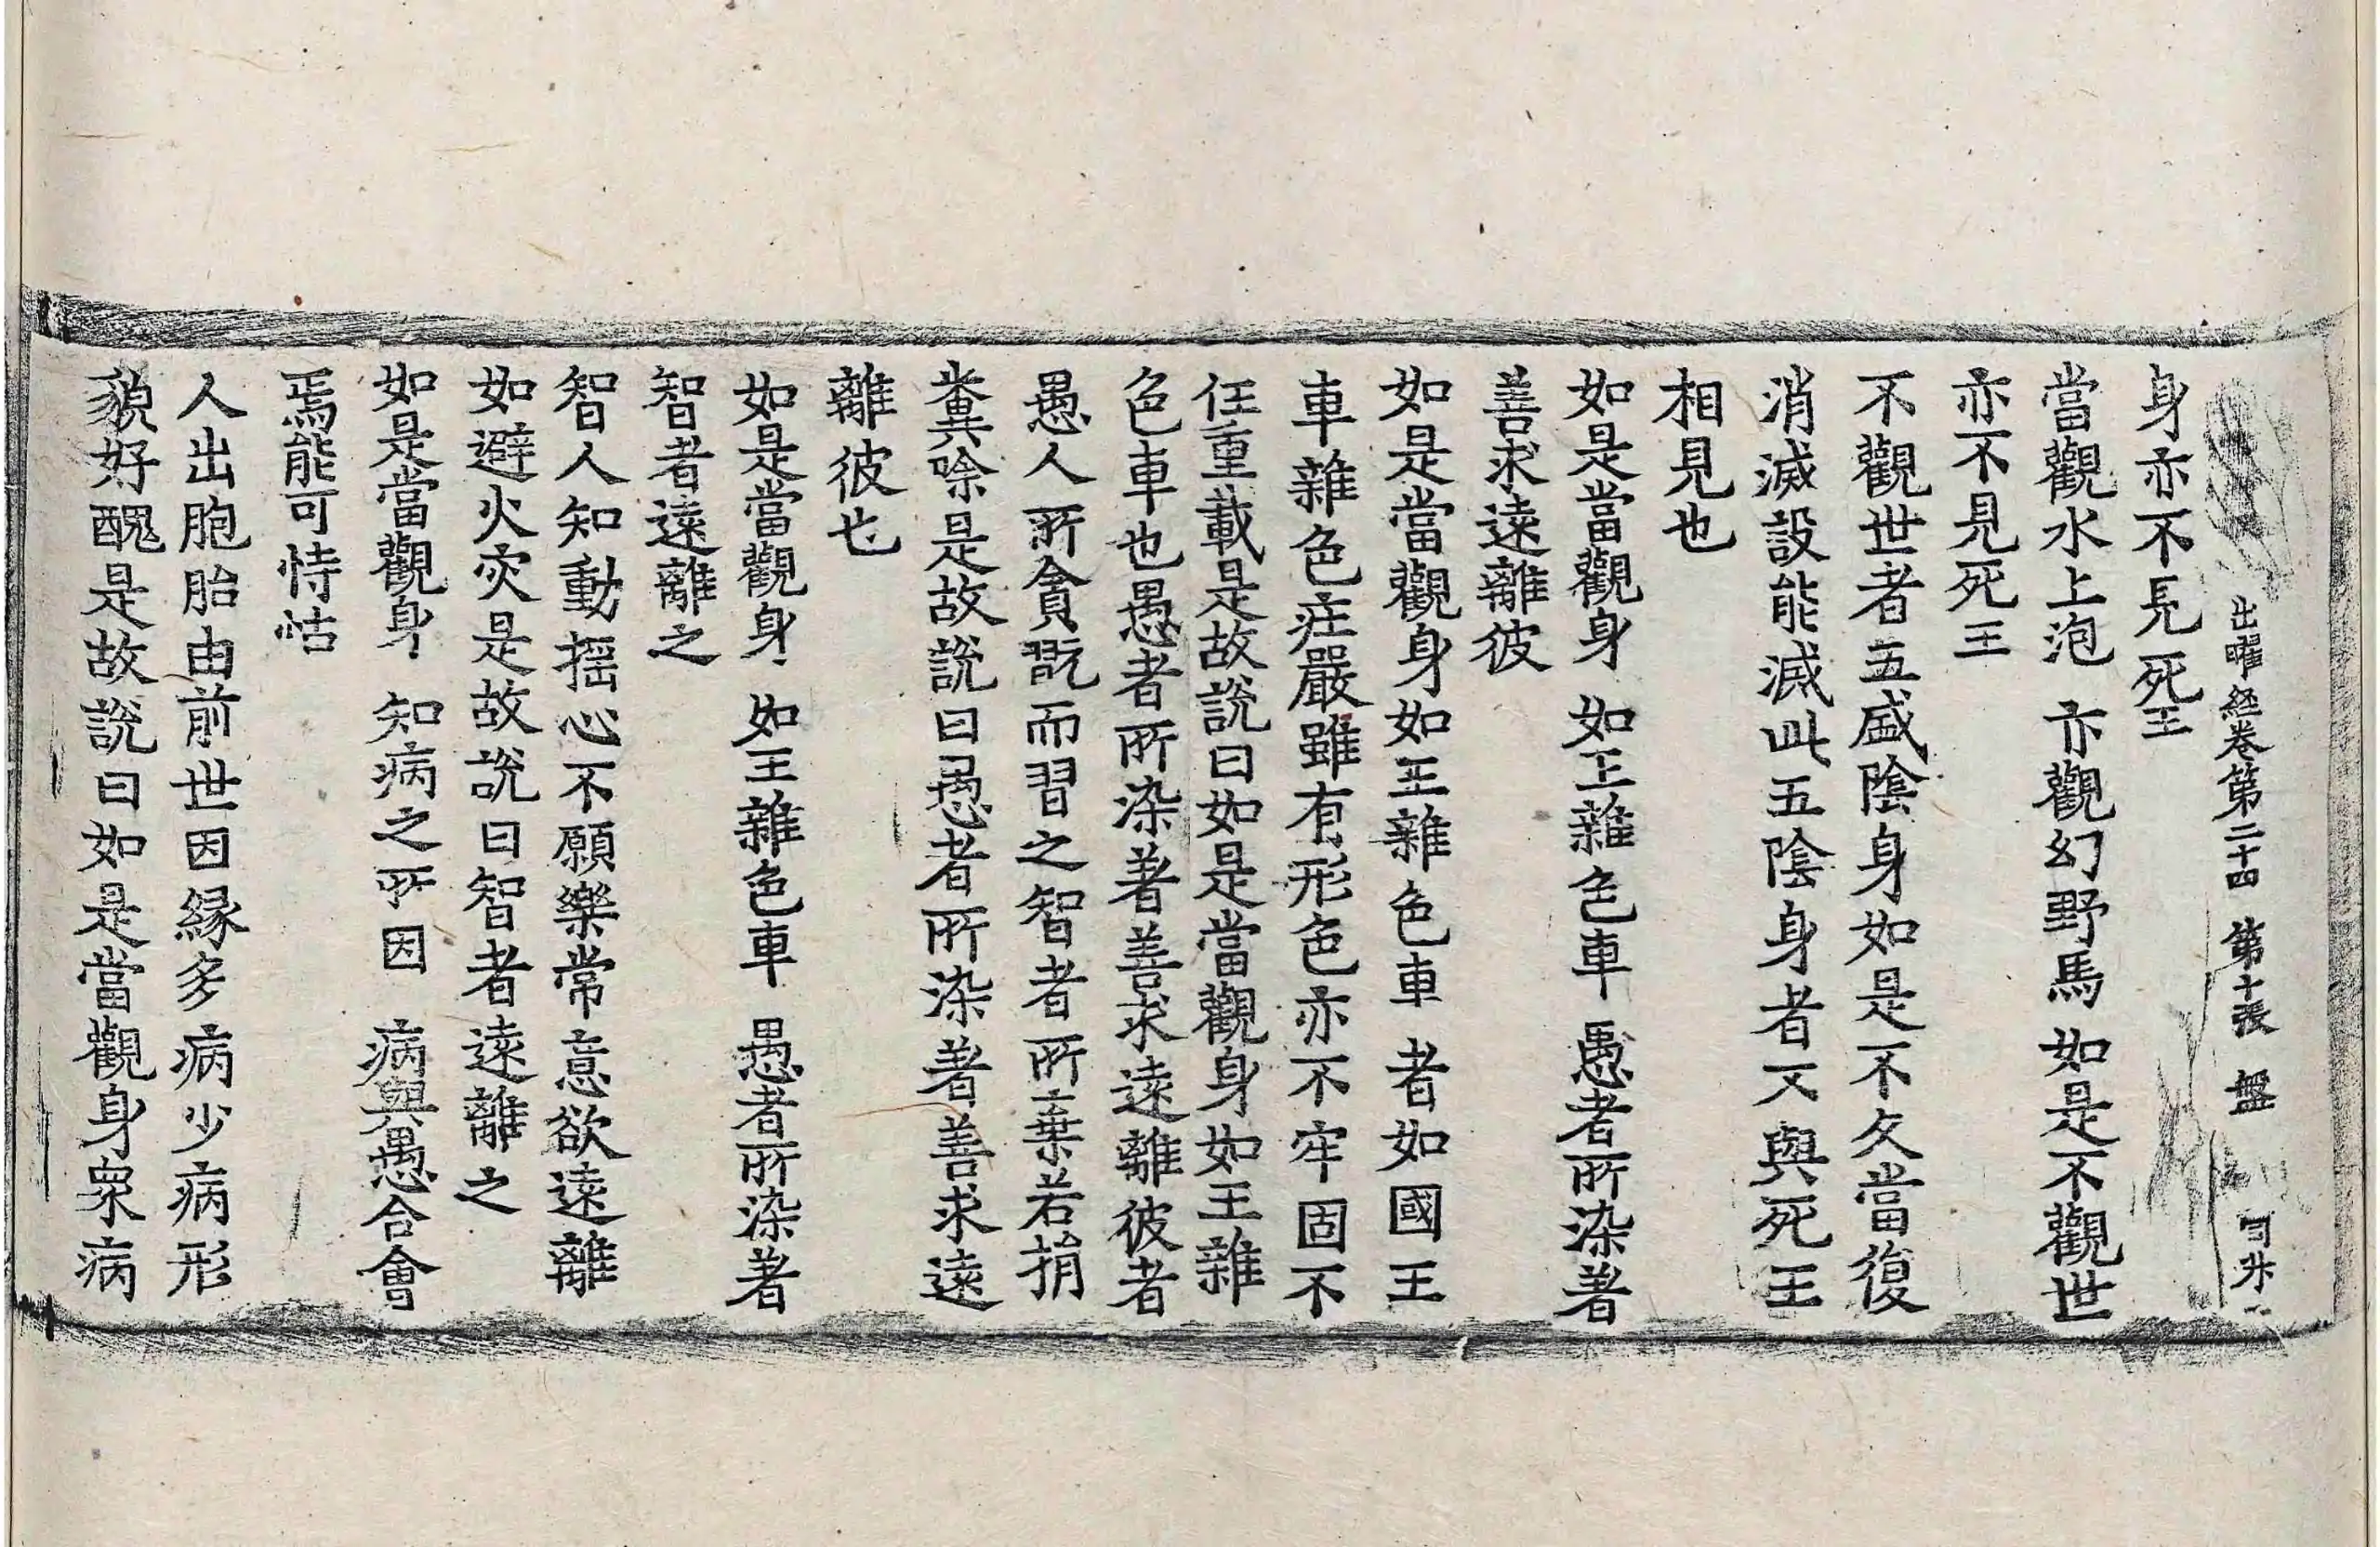 出曜經卷第二十四 第十張 盤
身亦不見死王
當觀水上泡 亦觀幻野馬 如是不觀世
亦不見死王
不觀世者五盛陰身如是不久當復
消滅設能滅此五陰身者又與死王
相見也
如是當觀身 如王雜色車 愚者所染著
善求遠離彼
如是當觀身如王雜色車者如國王
車雜色莊嚴雖有形色亦不牢固不
任重載是故說曰如是當觀身如王雜
色車也愚者所染著善求遠離彼者
愚人所貪翫而習之智者所棄若捐
糞除是故說曰愚者所染著善求遠
離彼也
如是當觀身 如王雜色車 愚者所染著
智者遠離之
智人知動搖心不願樂常意欲遠離
如避火灾是故說曰智者遠離之
如是當觀身 知病之所因 病與愚合會
焉能可恃怙
人出胞胎由前世因緣多病少病形
貌好醜是故說曰如是當觀身衆病